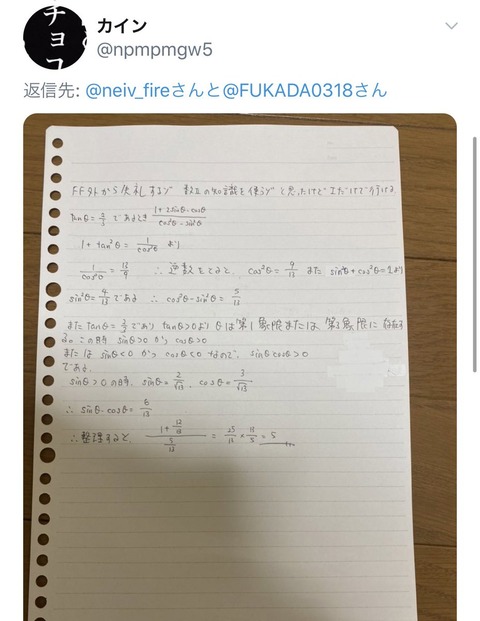 チョコ
カイン
@npmpmgw5
返信先: @neiv_fireさんと@FUKADA0318さん
FF外から失礼するゾ 数IIの知識を使うゾと思ったけどIだけで行ける
tanθ = 2/3 であるとき (1+2sinθ·cosθ)/(cos²θ-sin²θ)
1 + tan²θ = 1/cos²θ より
1/cos²θ = 13/9 ∴ 逆数をとると、cos²θ = 9/13 また sin²θ+cos²θ=1より
sin²θ = 4/13 である ∴ cos²θ-sin²θ = 5/13
また tanθ = 2/3 であり tanθ>0より θは第1象限または第3象限に存在す
る。この時 sinθ>0 かつ cosθ>0
または sinθ<0 かつ cosθ<0 なので、sinθcosθ>0
である。
sinθ>0の時、sinθ = 2/√13、cosθ = 3/√13
∴ sinθ·cosθ = 6/13
∴ 整理すると、(1+12/13)/(5/13) = 25/13 × 13/5 = 5